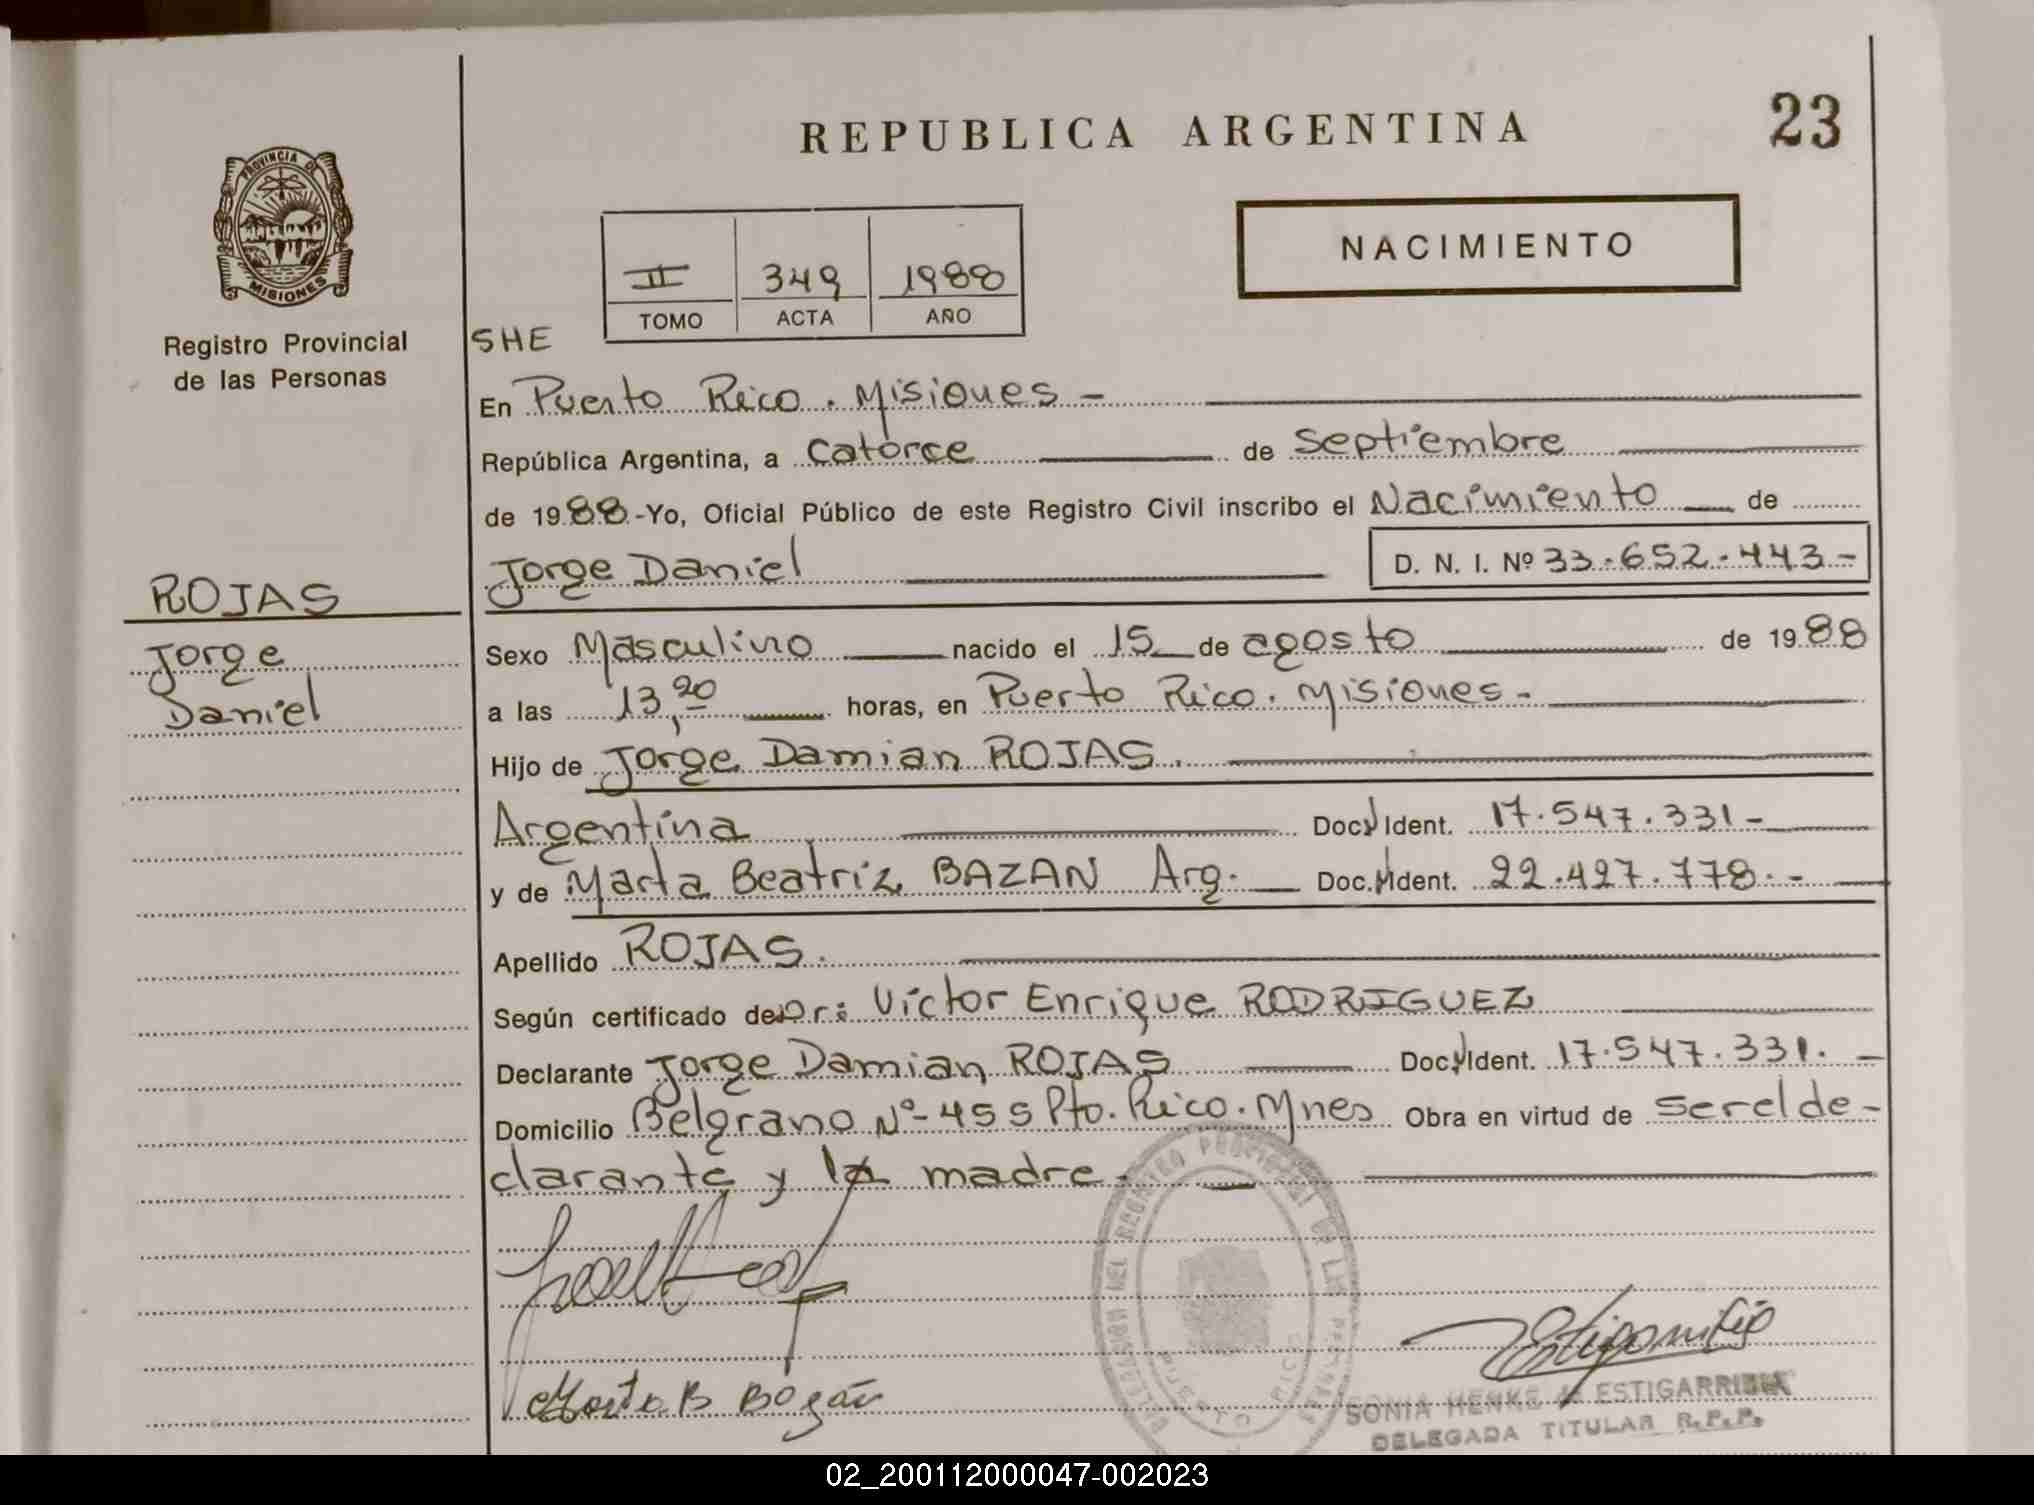 REPUBLICA ARGENTINA
23
PROVINCIA DE
MISIONES
Registro Provincial
de las Personas
II 349 1988
TOMO ACTA AÑO
NACIMIENTO
SHE
En Puerto Rico. Misiones -
República Argentina, a catorce de septiembre
de 1988.-Yo, Oficial Público de este Registro Civil inscribo el Nacimiento de
Jorge Daniel
D. N. I. Nº 33.652.443-
ROJAS
Jorge
Daniel
Sexo Masculino nacido el 15 de agosto de 1988
a las 13,20 horas, en Puerto Rico. Misiones-
Hijo de Jorge Damian ROJAS.
Argentina Doc. Ident. 17.547.331-
y de Marta Beatriz BAZAN Arg. Doc. Ident. 22.427.778.-
Apellido ROJAS.
Según certificado de Dr: Victor Enrique RODRIGUEZ
Declarante Jorge Damian ROJAS Doc. Ident. 17.547.331.-
Domicilio Belgrano Nº-455 Pto. Rico. Mnes Obra en virtud de ser el de-
clarante y la madre.
Marta B Bazán
SONIA HENKE de ESTIGARRIBIA
DELEGADA TITULAR R.P.P.
02_200112000047-002023